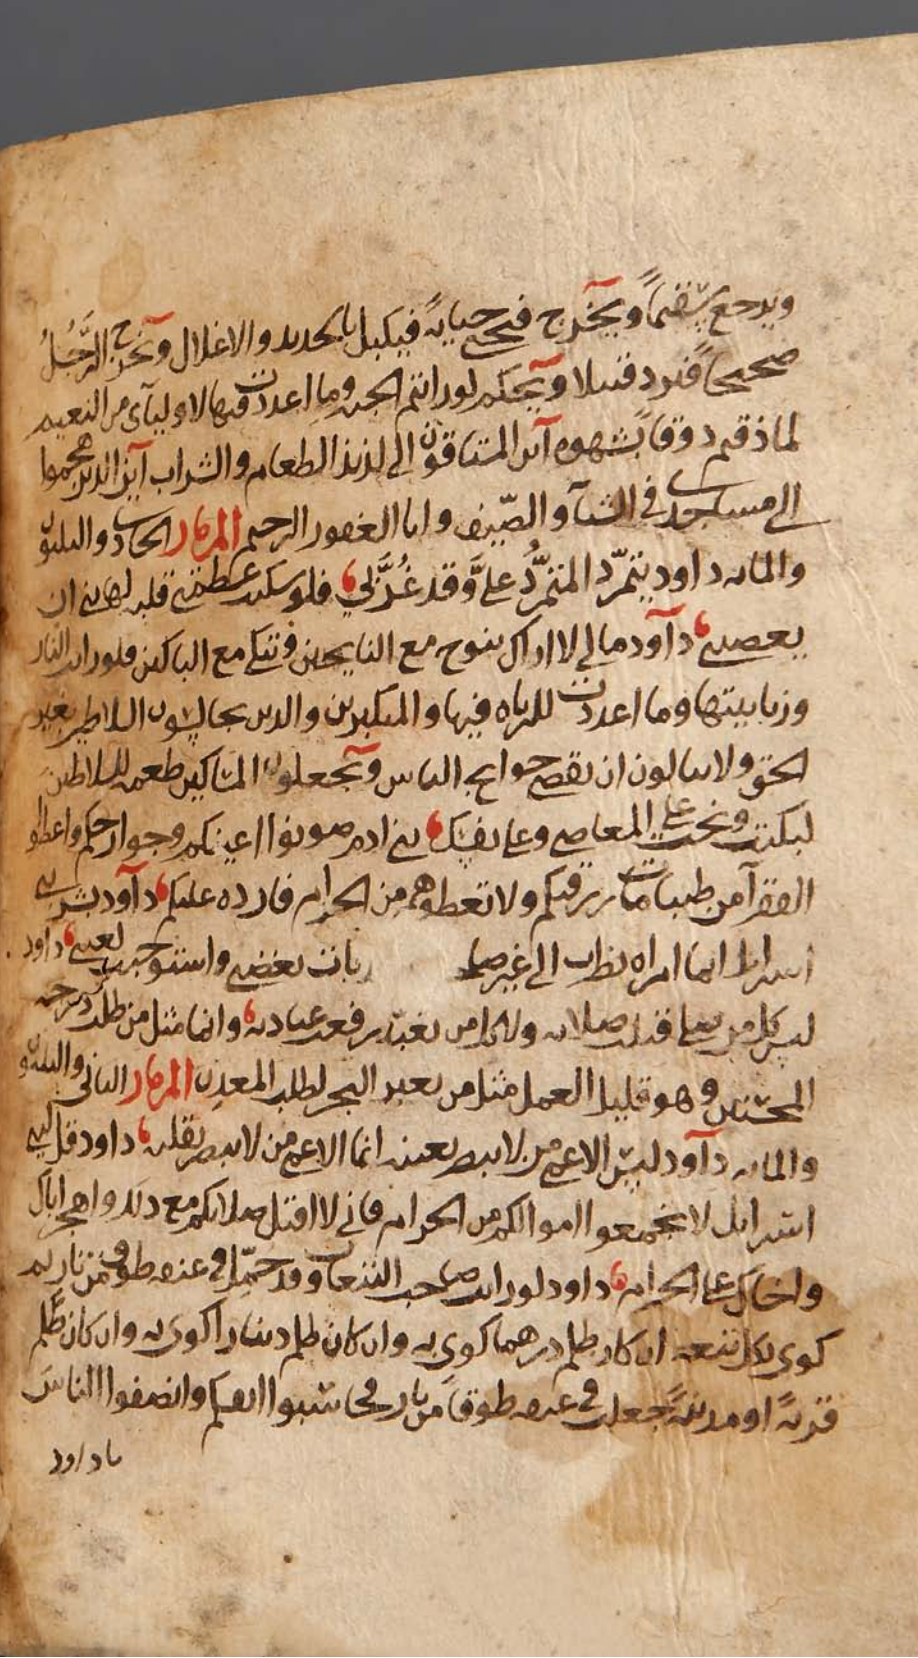 ويرجع سقيماً ويخرج فيجني جناية فيكبل بالحديد والاغلال ويخرج الرَّجُلُ
صحيحاً فيرد قتيلا ويحكم لو رايتم الجنه وما اعددت فيها لاوليآي من النعيم
لما ذقتم دوقا بشهوه آين المشتاقون الى لذيذ الطعام والشراب آين الذين هجموا
الى مساجدي في الشتآ والصّيف وانا الغفور الرحيم المزمار الحادي والثلثون
والمايه داود يتمرّد المتمرّد علىَّ وقد غُدّيَ فلو سكنت عظمتي قلبه لهابني ان
يعصيني دآود مالي لا اراك تنوح مع النايحين وتبكي مع الباكين فلو رايت النار
وزبانيتها وما اعددت للزناه فيها والمتكبرين والذين يجالسون السلاطين بغير
الحق ولا يبالون ان تقضى حوايج الناس ويجعلون المساكين طعمه للسلاطين
لبكيت ونحت على المعاصي وعلى نفسك بني ادم صونوا اعينكم وجوارحكم واعطوا
الفقرآ من طيبات ما رزقتكم ولا تعطوهم من الحرام فارده عليكم دآود بشر بني
اسرايل ايما امراه نظرت الى غير باتت بغضبي واستوجبت لعنتي داود
ليس كل من صلى قبلت صلاته ولا كل من تعبّد رفعت عبادته وانما مثل من طلب درجه
المحسنين وهو قليل العمل مثل من يعبر البحر لطلب المعدن المزمار الثاني والثلثون
والمايه دآود ليس الاعمى من لا يبصر بعينه انما الاعمى من لا يبصر بقلبه داود قل لبني
اسرايل لا تجمعوا اموالكم من الحرام فاني لا اقبل صلاتكم مع ذلك واهجر اباك
واخاك على الحرام داود لو رايت صاحب التبعات وقد حمّل في عنقه طوق من نار ثم
كوي بكل تبعه ان كان ظلم درهما كوي به وان كان ظلم دينارا كوي به وان كان ظلم
قريةً او مدينةً جعلت في عنقه طوقاً من نار فحاسبوا انفسكم وانصفوا الناسَ
يا داود